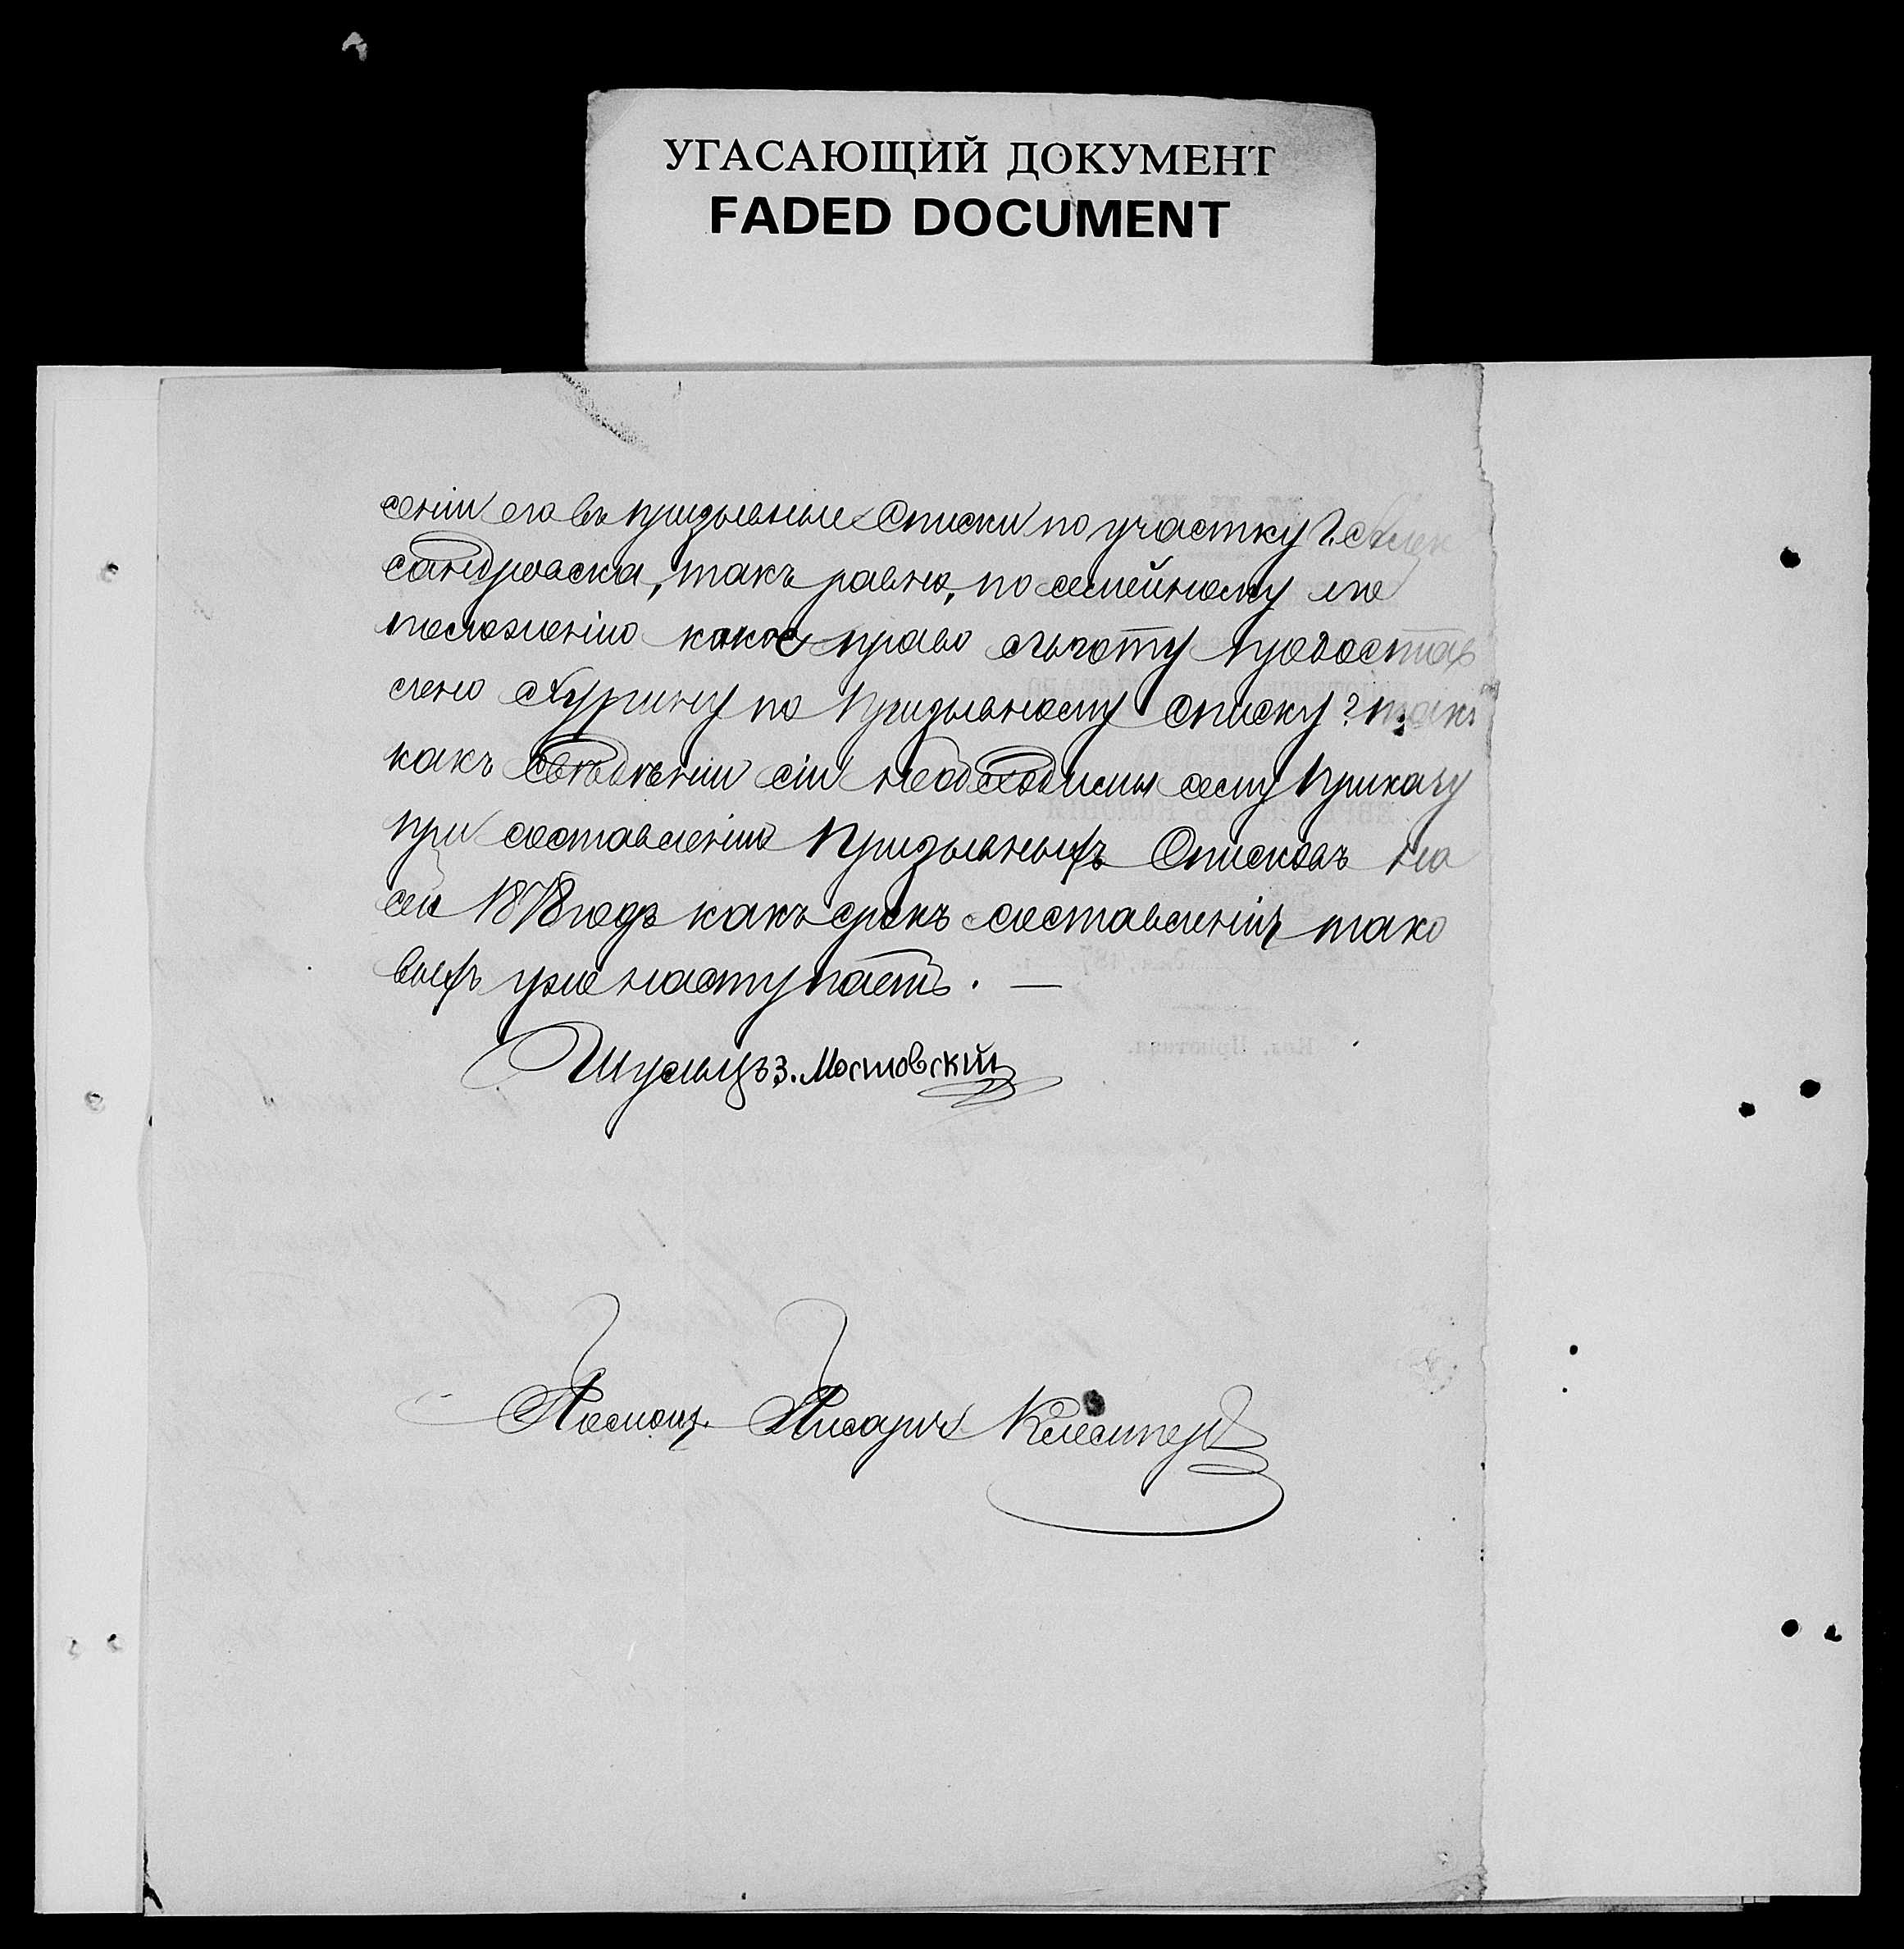 УГАСАЮЩИЙ ДОКУМЕНТ
FADED DOCUMENT
сеніи его въ призывные списки по участку г. Алек
сандровска, такъ равно, по семейному его
положенію какое право льготу предостав
лено Аурину по Призывному списку? такъ
какъ свѣдѣніи сіи необходимы сему Приказу
при составленіи Призывныхъ Списковъ на
сей 1878 годъ какъ срокъ составленія тако
выхъ уже наступаетъ. —
Шульцъ з. Мостовскій
Помощ. Писаря
Кол. Пріютная.